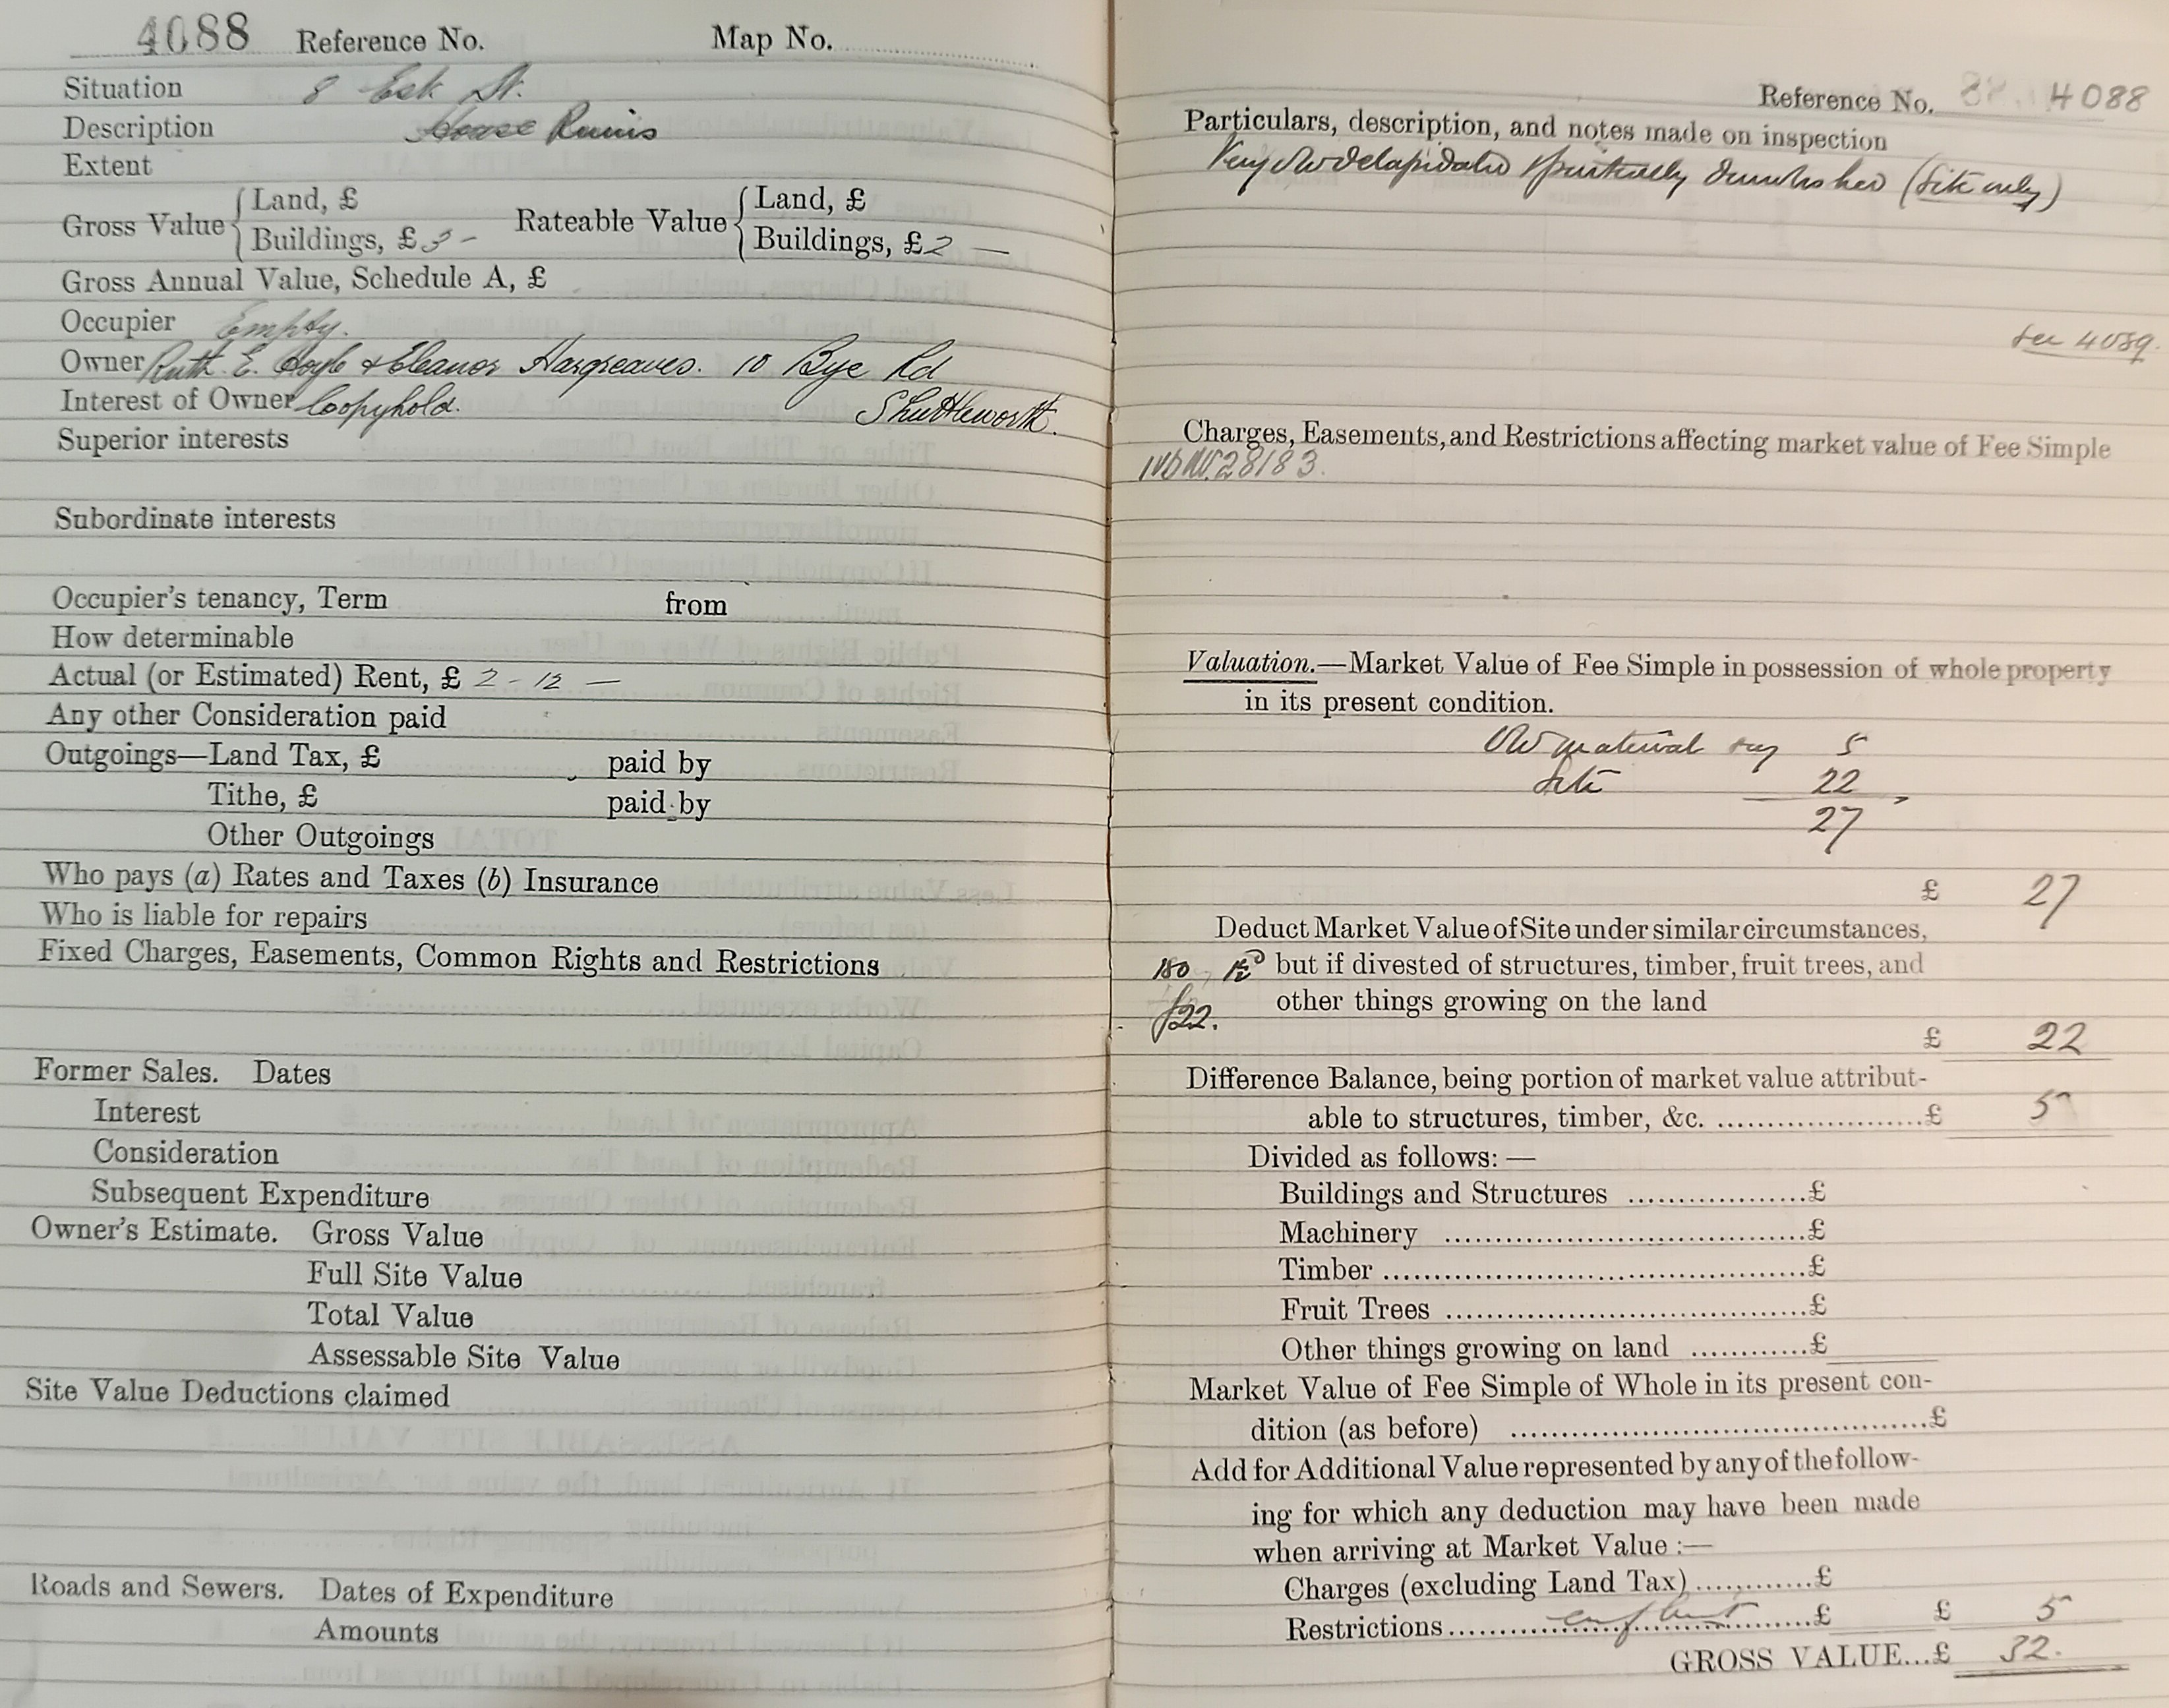 4088 Reference No. Map No.
Situation 8 Esk St.
Description House Ruins
Extent
Gross Value { Land, £
Buildings, £ 3 - Rateable Value { Land, £
Buildings, £ 2 —
Gross Annual Value, Schedule A, £
Occupier Empty.
Owner Ruth. E. Hoyle & Eleanor Hargreaves. 10 Bye Rd
Interest of Owner Coopyhold. Shuttleworth.
Superior interests
Subordinate interests
Occupier's tenancy, Term from
How determinable
Actual (or Estimated) Rent, £ 2 - 12 —
Any other Consideration paid
Outgoings—Land Tax, £ paid by
Tithe, £ paid by
Other Outgoings
Who pays (a) Rates and Taxes (b) Insurance
Who is liable for repairs
Fixed Charges, Easements, Common Rights and Restrictions
Former Sales. Dates
Interest
Consideration
Subsequent Expenditure
Owner's Estimate. Gross Value
Full Site Value
Total Value
Assessable Site Value
Site Value Deductions claimed
Roads and Sewers. Dates of Expenditure
Amounts
Reference No. 4088
Particulars, description, and notes made on inspection
Very old delapidated & partially demolished (Site only)
see 4089.
Charges, Easements, and Restrictions affecting market value of Fee Simple
28183.
Valuation.—Market Value of Fee Simple in possession of whole property
in its present condition.
Old material say 5
Site 22
27
£ 27
Deduct Market Value of Site under similar circumstances,
180 but if divested of structures, timber, fruit trees, and
£22. other things growing on the land
£ 22
Difference Balance, being portion of market value attribut-
able to structures, timber, &c. ....................£ 5
Divided as follows: —
Buildings and Structures ..................£
Machinery ....................................£
Timber ..........................................£
Fruit Trees ....................................£
Other things growing on land ............£
Market Value of Fee Simple of Whole in its present con-
dition (as before) ..........................................£
Add for Additional Value represented by any of the follow-
ing for which any deduction may have been made
when arriving at Market Value :—
Charges (excluding Land Tax) ............£
Restrictions ....................................£ £ 5
GROSS VALUE...£ 32.